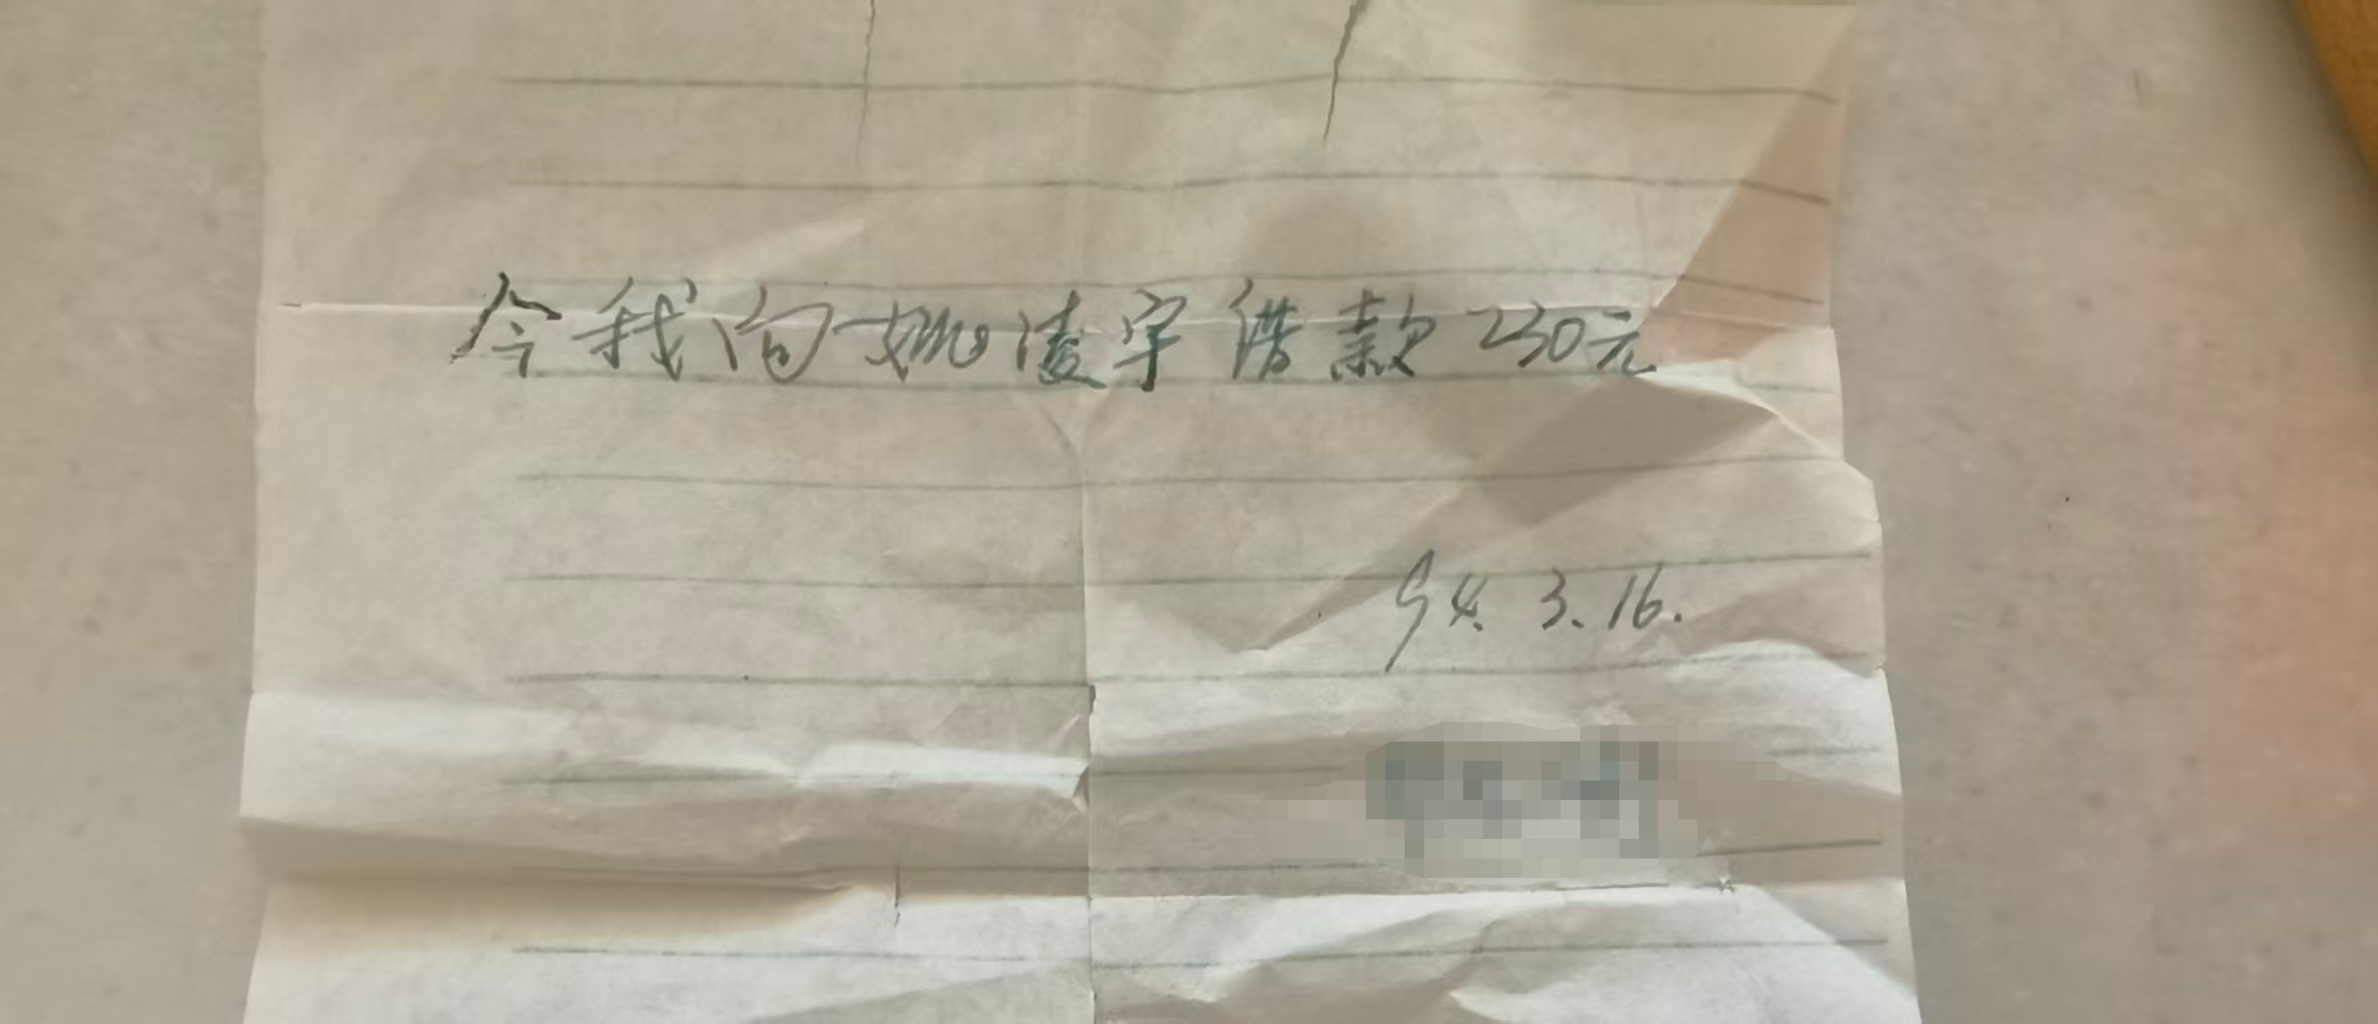 今我向姚凌宇借款230元
94.3.16.